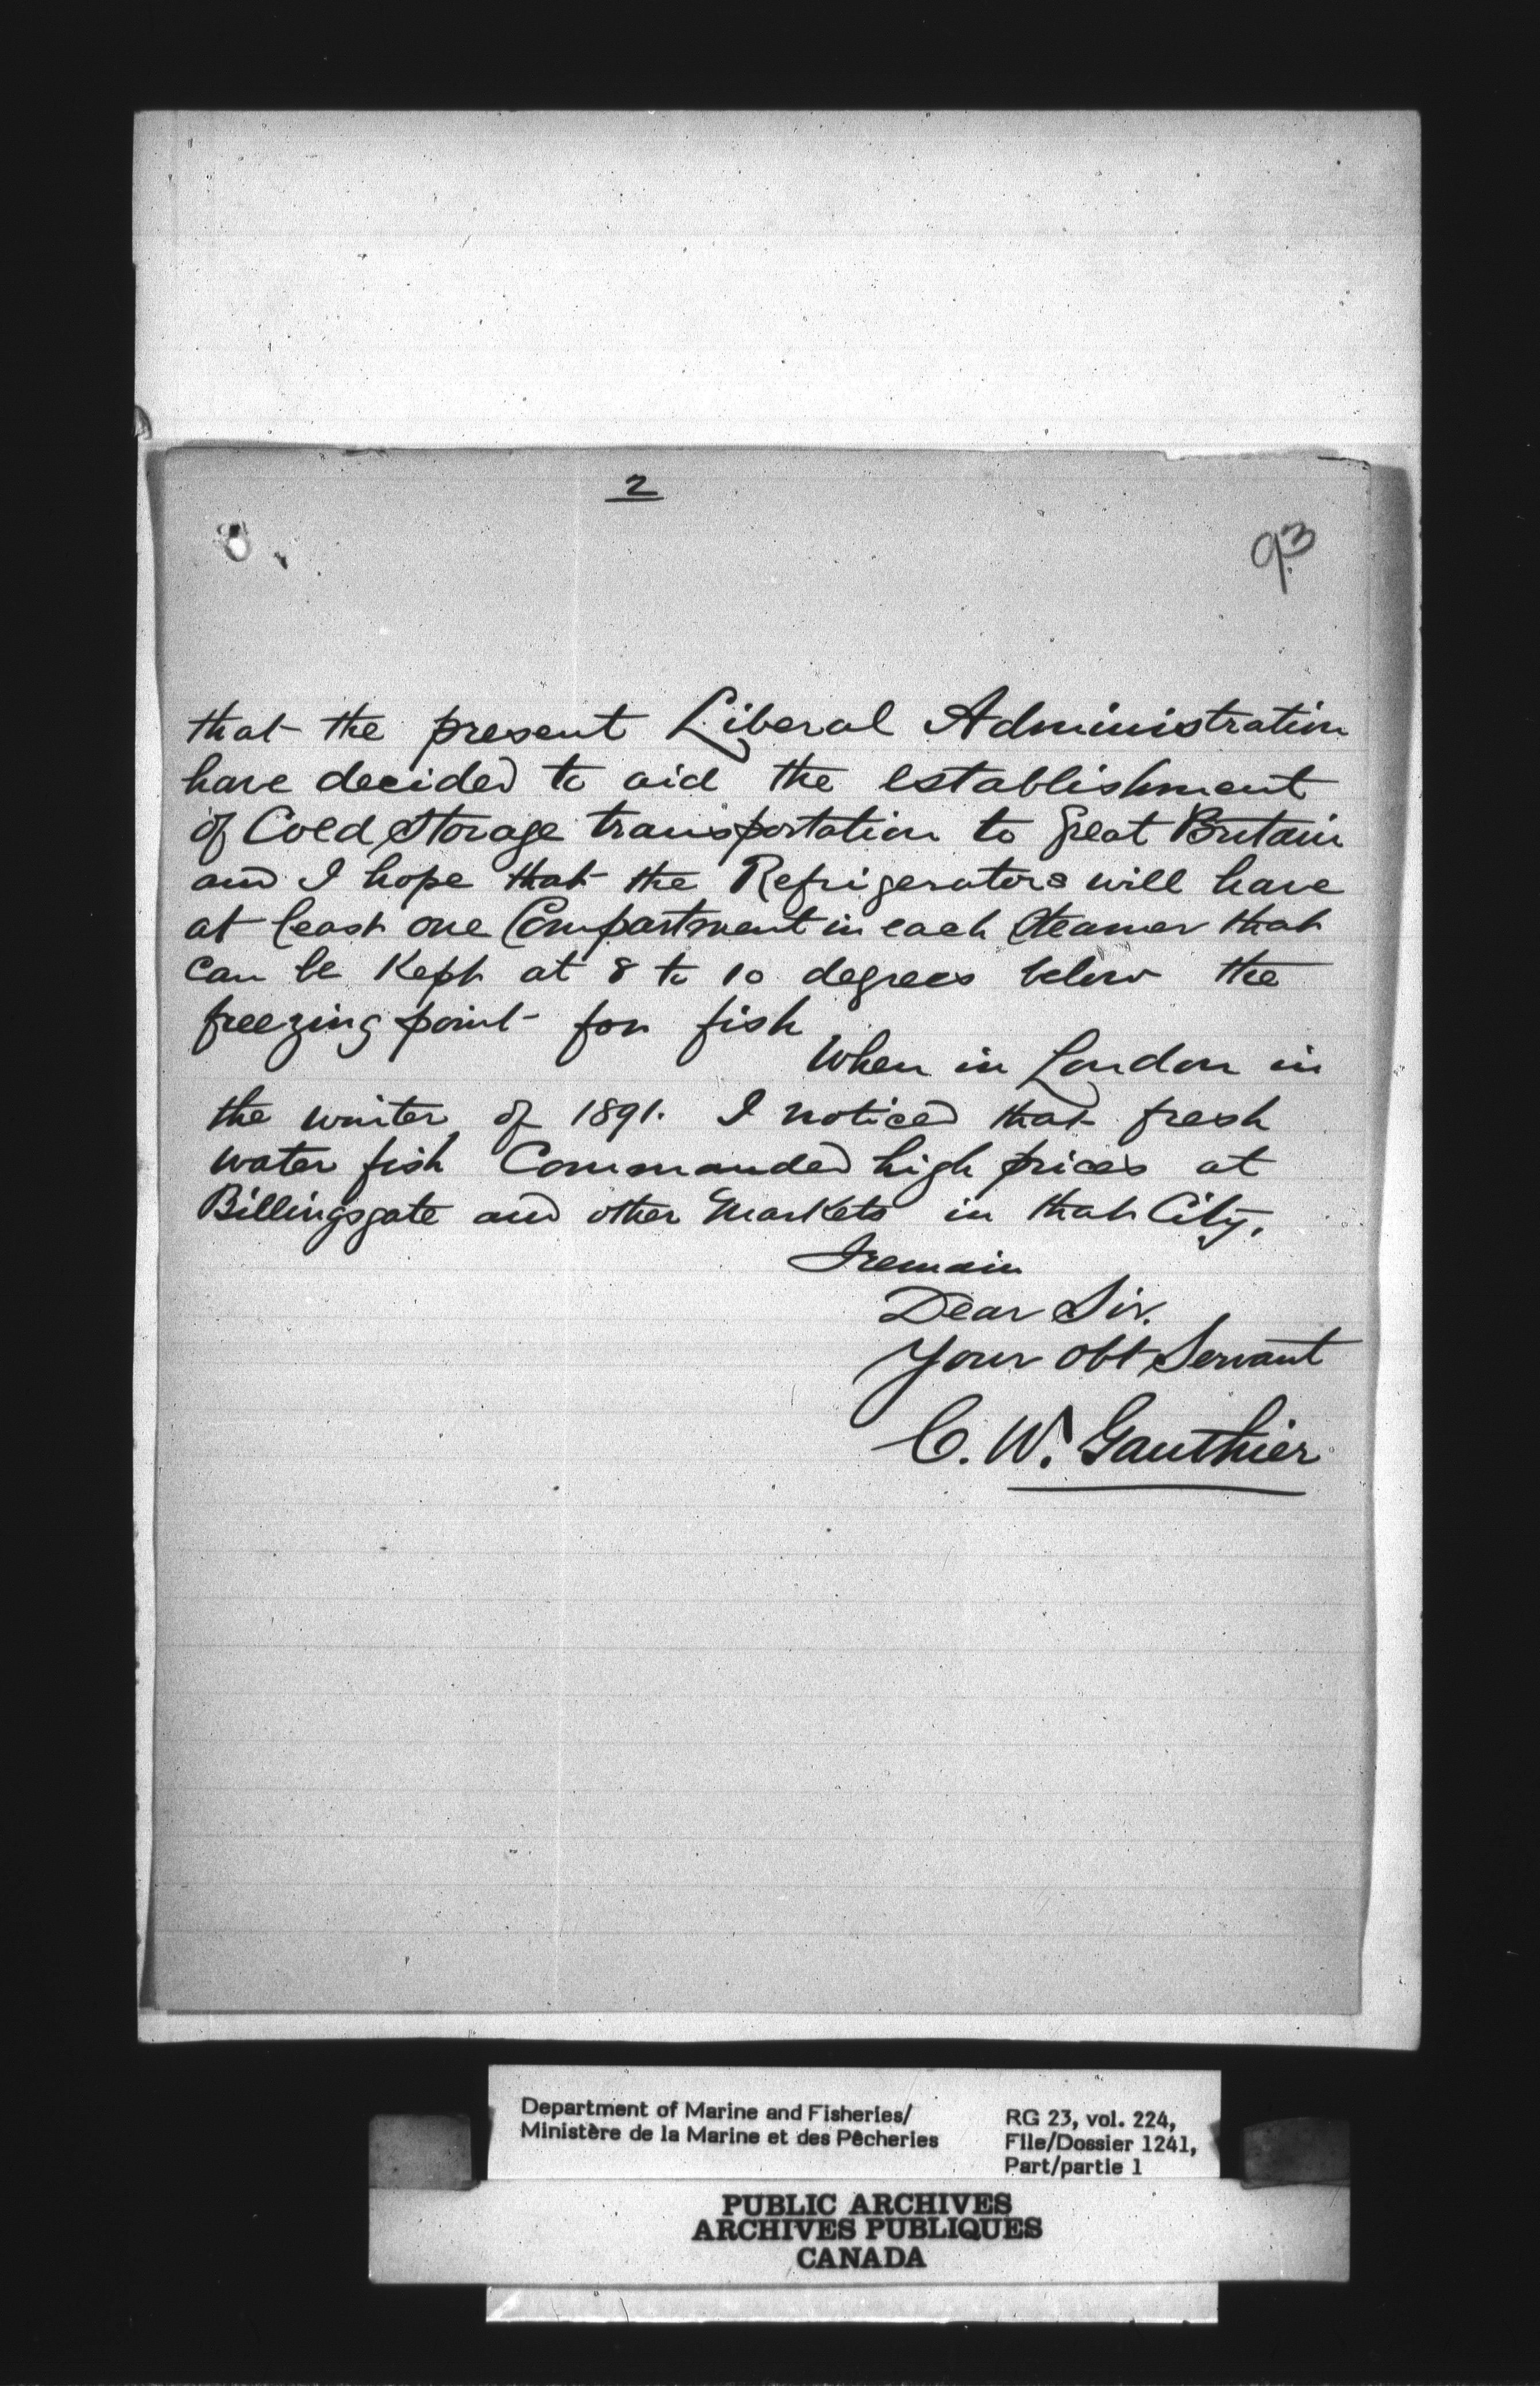 2
93
that the present Liberal Administration
have decided to aid the establishment
of Cold Storage transportation to Great Britain
and I hope that the Refrigerators will have
at least one Compartment in each Steamer that
can be kept at 8 to 10 degrees below the
freezing point for fish
When in London in
the winter of 1891. I noticed that fresh
water fish Commanded high prices at
Billingsgate and other Markets in that City.
I remain
Dear Sir.
Your Obt Servant
C. W. Gauthier
Department of Marine and Fisheries/
Ministère de la Marine et des Pêcheries
RG 23, vol. 224,
File/Dossier 1241,
Part/partie 1
PUBLIC ARCHIVES
ARCHIVES PUBLIQUES
CANADA